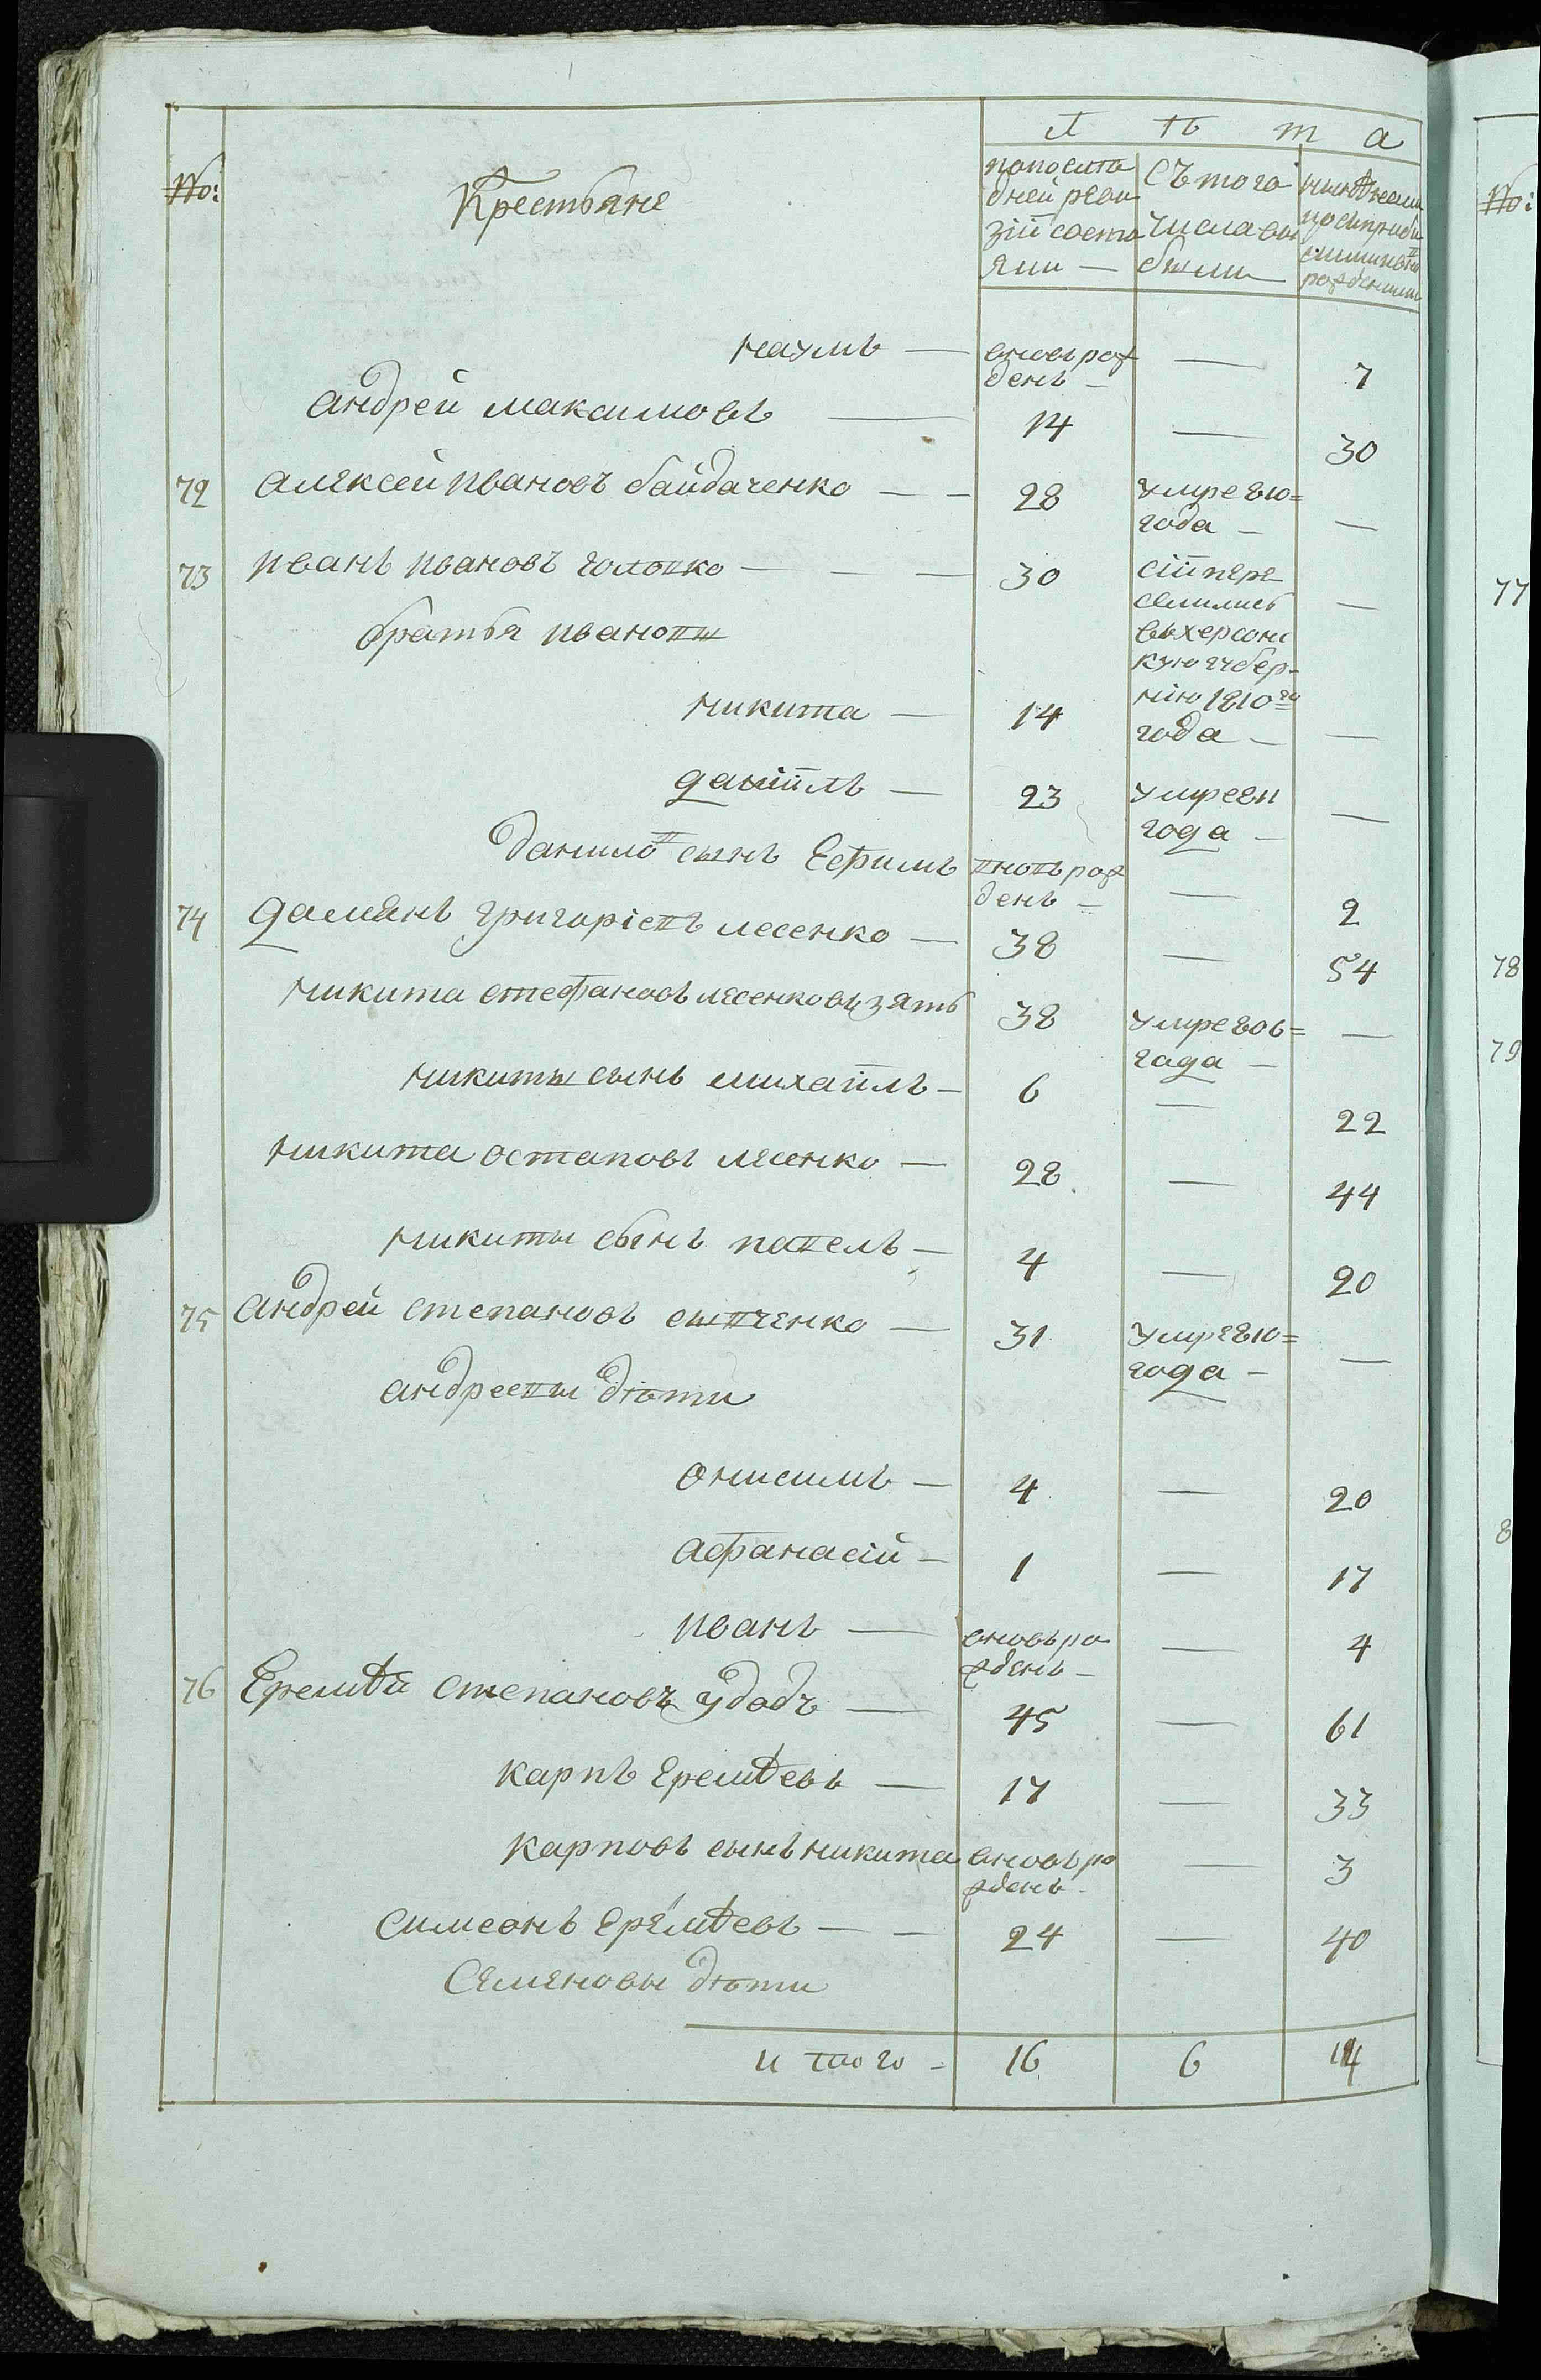 Л ѣ т а
№:
Крестьяне
по последней ревизіи состояли —
Съ того числа выбыли —
наумъ — вновь рожденъ — — 7
андрей максимовъ — 14 — 30
72 алексей ивановъ байдаченко — — 28 умре 810= года — —
73 иванъ ивановъ голопко — — — 30 сіи переселились въ херсонскую губернію 1810го года — —
братья ивановы
никита — 14 —
даніилъ — 23 умре 811 года — —
данилов сынъ Ефимъ вновь рожденъ — — 2
74 дамянъ григоріевъ лесенко — 38 — 54
никита стефановъ лесенковъ зять 38 умре 806= года — —
никиты сынъ михаилъ — 6 — 22
никита остаповъ лесенко — 28 — 44
никиты сынъ павелъ — 4 — 20
75 андрей степановъ сывченко — 31 умре 810= года — —
андреевы дѣти
онисимъ — 4 — 20
афанасій — 1 — 17
иванъ — вновь рожденъ — — 4
76 Еремѣй степановъ удодъ — 45 — 61
карпъ еремѣевъ — 17 — 33
карповъ сынъ никита вновь рожденъ — — 3
симеонъ еремѣевъ — — 24 — 40
Семеновы дѣти
итого — 16 6 14
№:
77
78
79
8